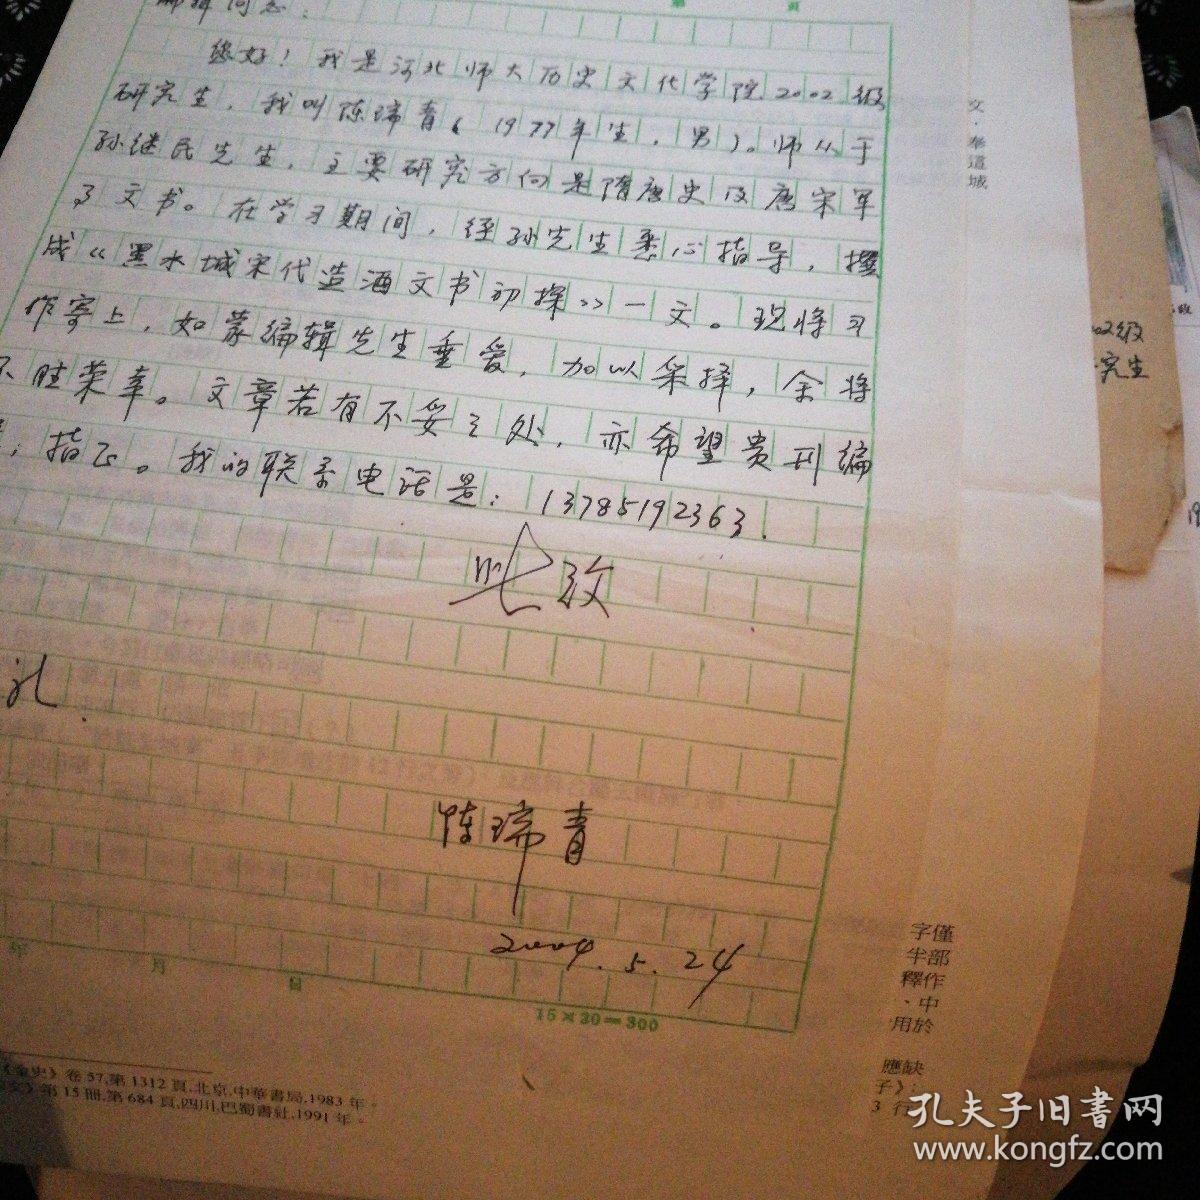 编辑同志：
您好！我是河北师大历史文化学院2002级
研究生，我叫陈瑞青（1977年生，男）。师从于
孙继民先生，主要研究方向是隋唐史及唐宋军
事文书。在学习期间，经孙先生悉心指导，撰
成《黑水城宋代造酒文书初探》一文。现将习
作寄上，如蒙编辑先生垂爱，加以采择，余将
不胜荣幸。文章若有不妥之处，亦希望贵刊编
指正。我的联系电话是：13785192363.
此致
礼.
陈瑞青
2004.5.24
年 月 日
15×20=300
《金史》卷57,第1312頁,北京,中華書局,1983年。
文》第15冊,第684頁,四川,巴蜀書社,1991年。
頁
文·奉這城
02级
究生
19
字僅
半部
釋作
、中
用於
應缺
子》:
3 行
孔夫子旧書网
www.kongfz.com